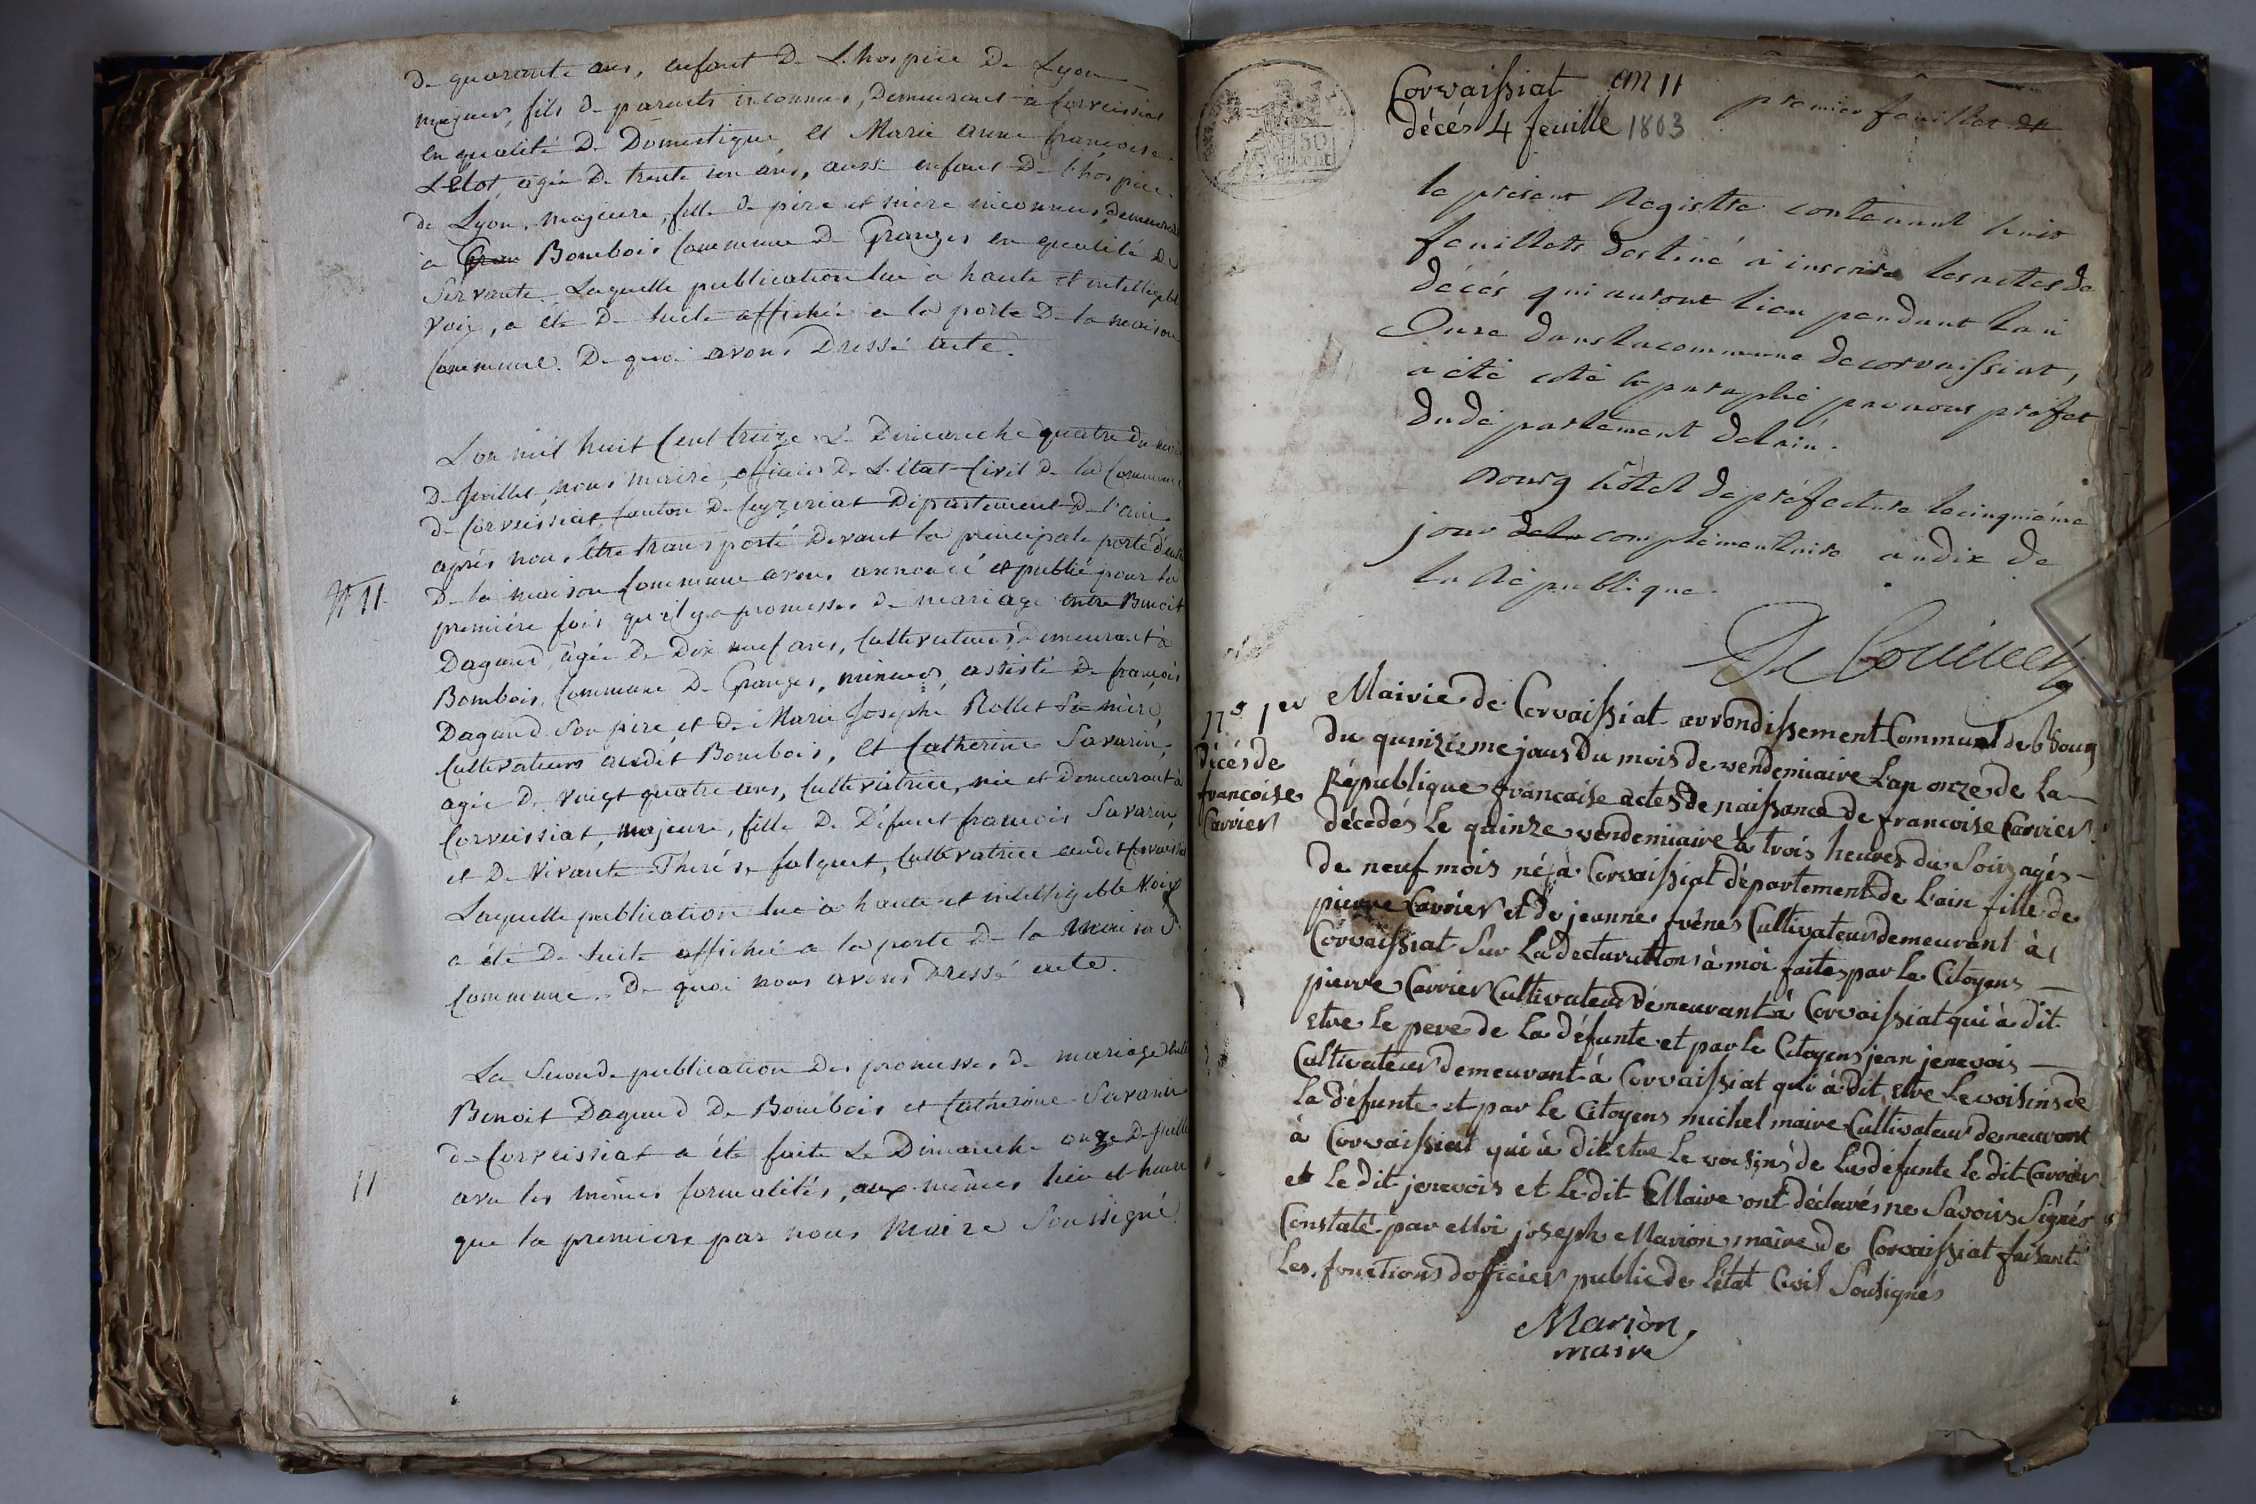 de quarante ans, enfant de L'hospice de Lyon
majeur, fils de parents inconnus, demeurant à Corveissiat
en qualité de Domestique, et Marie anne françoise
Lelot agée de trente un ans, aussi enfant de l'hospice
de Lyon, majeure, fille de père et mère inconnus, demeurant
à Bombois Commune de Granges en qualité de
Servante. Laquelle publication lue à haute et intelligible
voix, a été de suite affichée a la porte de la maison
Commune. De quoi avons Dressé acte.
L'an mil huit Cent treize Le Dimanche quatre du mois
de Juillet, nous maire, officier de L'état Civil de la Commune
de Corveissiat, Canton de Ceyzeriat Département de l'ain
après nous être transporté devant la principale porte d'entrée
de la maison Commune avons annoncé et publié pour la
N° 11
première fois qu'il y a promesses de mariage entre Benoit
Dagaud, agée de Dix neuf ans, Cultivateur, demeurant à
Bombois, Commune de Granges, mineur, assisté de françois
Dagaud Son père et de Marie Josephe Rollet Sa mère,
Cultivateurs audit Bombois, et Catherine Savarin,
agée de vingt quatre ans, Cultivatrice, née et Demeurant à
Corveissiat, majeure, fille de Défunt françois Savarin,
et de vivante Thérèse falquet, Cultivatrice audit Corveissiat
Laquelle publication lue à haute et intelligible voix
a été de suite affichée a la porte de la maison
Commune. De quoi nous avons Dressé acte.
La Seconde publication des promesses de mariage entre
Benoit Dagaud de Bombois et Catherine Savarin
de Corveissiat a été faite Le Dimanche onze de Juillet
11
avec les mêmes formalités, aux mêmes lieu et heure
que la première par nous Maire Soussigné
Corvaissiat an 11
décés 4 feuille 1803
premier feuillet
le présent Registre contenant huit
feuillets destiné à inscrire les actes de
décés qui auront lieu pendant l'an
Onze dans la commune de corvaissiat,
a été coté et paraphé par nous préfet
du département de l'ain.
Bourg hôtel de préfecture le cinquième
jour complémentaire an dix de
la République.
n° 1er
décés de
francoise
Carrier
Mairie de Corvaissiat arrondissement Communal de Bourg
du quinzieme jour du mois de vendemiaire L'an onze de la
République francaise actes de naissance de francoise Carrier
décédés le quinze vendemiaire à trois heures du Soir, agés
de neuf mois né à Corvaissiat département de L'ain fille de
pierre Carrier et de jeanne frênes Cultivateur demeurant à
Corvaissiat Sur La declaration à moi faites par le Citoyens
pierre Carrier Cultivateur demeurant à Corvaissiat qui à dit
etre le pere de la défunte et par le Citoyens jean jenevois
Cultivateur demeurant à Corvaissiat qui à dit etre Le voisins de
la défunte et par le Citoyens michel maire Cultivateur demeurant
à Corvaissiat qui à dit etre le voisins de la défunte le dit Carrier
et le dit jenevois et le dit Maire ont déclarés ne Savoirs Signér
Constaté par Moi joseph Marion maire de Corvaissiat faisant
Les fonctions d'officier public de l'état Civil Sousignés
Marion,
maire